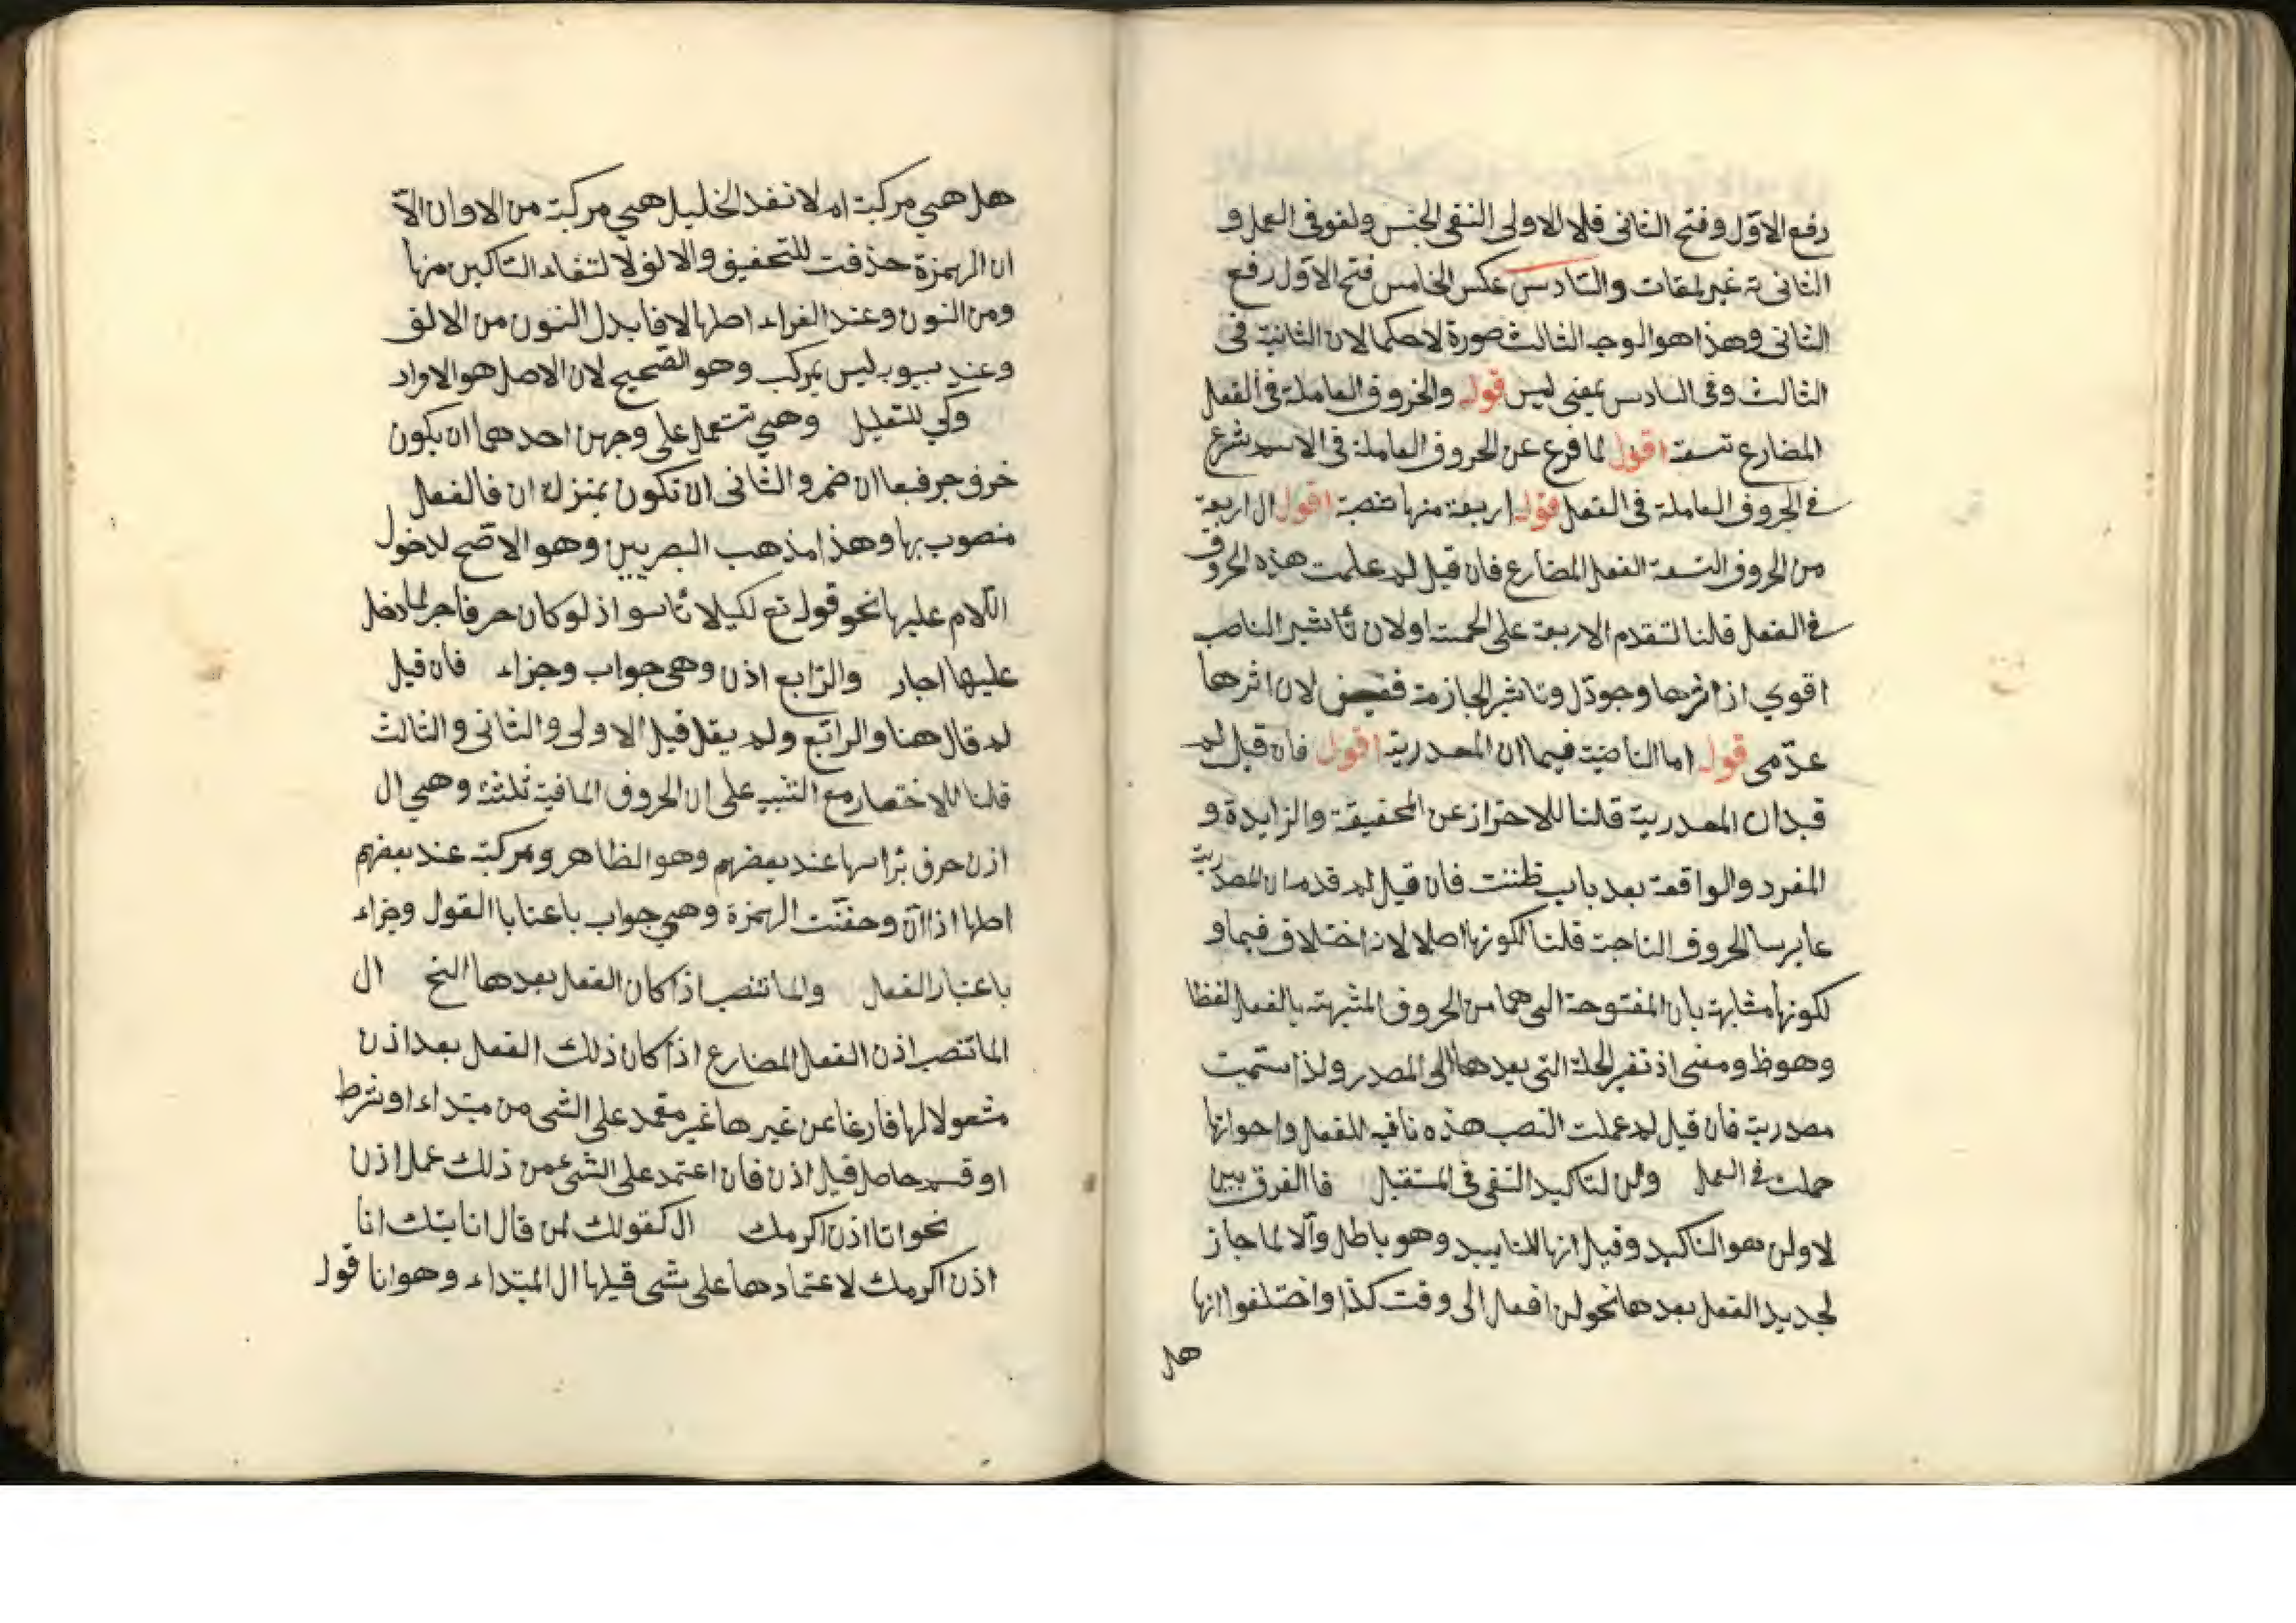 رفع الاوّل وفتح الثانى فلا الاولى النفى الجنس ولغو فى العمل و
الثانى ة غير لمقات والسّادس عكس الخامس فتح الاوّل رفع
الثانى وهذا هو الوجه الثالث صورة لا حكما لان الثانية فى
الثالث وفى السادس بمعنى ليس قوله والحروف العاملة فى الفعل
المضارع تسعة اقول لما فرع عن الحروف العاملة فى الاسم شرع
فى الحروف العاملة فى الفعل قوله اربعة منها تنصبه اقول ال اربعة
من الحروف التسعة الفعل المضارع فان قيل لم علمت هذه الحروف
فى الفعل قلنا لتقدم الاربعة على الخمسة او لان تأثير الناصب
اقوي اذ اثرها وجودى وتاثير الجازمة لان اثرها
عدّمى قوله اما الناصبة فيما ان المصدرية اقول فان قيل لم
قيد ان المصدرية قلنا للاحتراز عن المخفيفة والزايدة و
المفرد والواقعة بعد باب ظننت فان قيل لم قدم ان المصدرية
عا برسا الحروف الناجت قلنا لكونها اصلا لانه اختلاف فيها و
لكونها مشابهة بان المفتوحة التى هما من الحروف المشبهة بالفعل لفظا
وهو ظ ومعنى اذ تفير الجملة التى بعدها الى المصدر ولذا سمّيت
مصدرية فان قيل لم عملت النصب هذه نافيه للفعل واخواتها
حملت فى العمل ولن لتاكيد النفى فى المستقبل فا الفرق بين
لا ولن هو التاكيد وقيل انها للتابيد وهو باطل والّا لما جاز
لجديد الفعل بعدها نحو لن افعل الى وقت كذا واختلفوا انها
هل
هل هى مركبة ام لا فعند الخليل هى مركبة من الا وان الاّ
ان الهمزة حذفت للتخفيق والالف لالتقاء السّاكين منها
ومن النون وعند الفراء اصلها لا فابدل النون من الالف
وعند سيبويه ليس بمركب وهو الصّحيح لان الاصل هو الاواد
وكي للتعليل وهى تستعمل على وجهين احدهما ان يكون
حرف جر فبعا ان ضمر والثانى ان تكون بمنزلة ان فا الفعل
منصوب بها وهذا مذهب البصريين وهو الاصّح لدخول
اللام عليها نحو قوله تع لكيلا تأسوا اذ لو كان حرفا جر لما دخل
عليها اجار والرّابع اذن وهى جواب وجزاء فان قيل
لم قال هنا والرابع ولم يقل قيل الاولى والثانى والثالث
قلنا للاختصار مع التنبيه على ان الحروف المافية ثلثة وهى ال
اذن حرف برٔاسها عند بعضهم وهو الظاهر ومركبة عند بعضهم
اصلها اذا ان وحففت الهمزة وهى جواب باعتابا القول وجزاء
باعتبار الفعل وانما تنصب اذا كان الفعل بعدها النخ ال
انما تنصب اذن الفعل المضارع اذا كان ذلك الفعل بعد اذن
مشعولا لها فارغا عن غيرها غير معتمد على الشى من مبتداء او شرط
او قسم حاصل قيل اذن فان اعتمد على الشئ من ذلك عمل اذن
نحو انا اذن اكرمك ال كقولك لمن قال انا بتك انا
اذن اكرمك لاعتمادها على شى قبلها ال المبتداء وهو انا قول